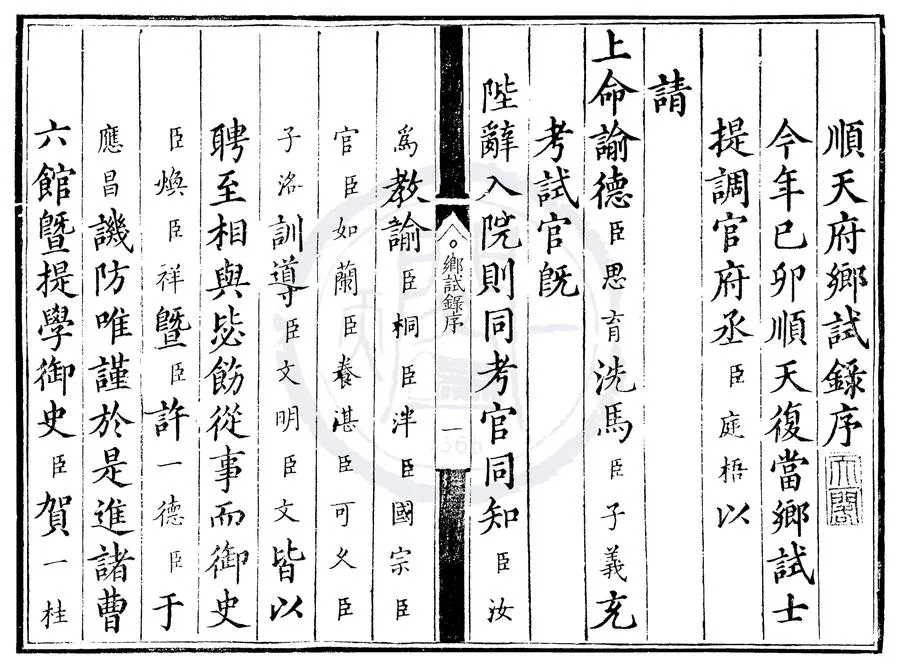 順天府鄉試錄序
今年已卯順天復當鄉試士
提調官府丞臣庭梧以
請
上命諭德臣思育洗馬臣子義充
考試官旣
陛辭入院則同考官同知臣汝
鄉試錄序
一
爲教諭臣桐臣泮臣國宗臣
官臣如蘭臣養湛臣可久臣
子洺訓導臣文明臣文皆以
聘至相與毖飭從事而御史
臣煥臣祥曁臣許一德臣于
應昌譏防唯謹於是進諸曹
六館曁提學御史臣賀一桂